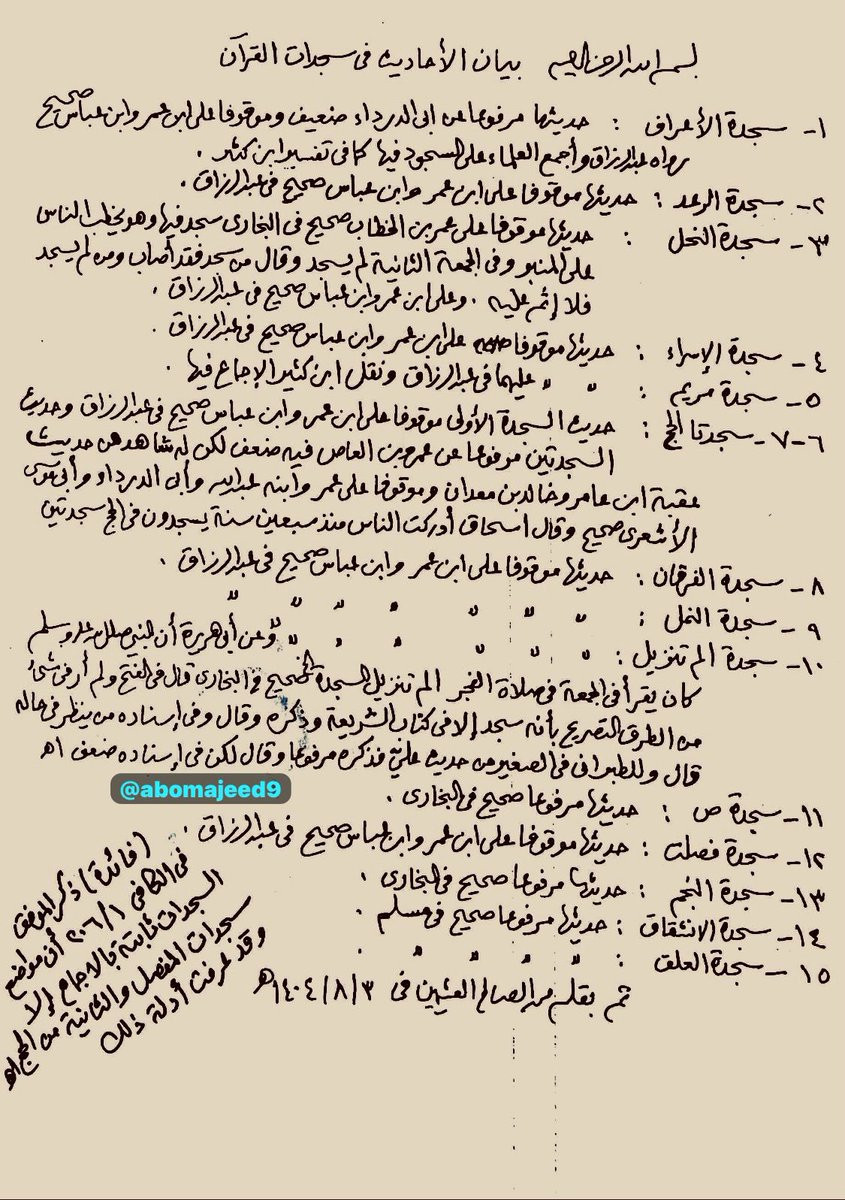 بسم الله الرحمن الرحيم بيان الأحاديث في سجدات القرآن
١- سجدة الأعراف : حديثها مرفوعا عن ابى الدرداء ضعيف وموقوفا على ابن عمر وابن عباس صحيح
رواه عبدالرزاق وأجمع العلماء على السجود فيها كما في تفسير ابن كثير .
٢- سجدة الرعد : حديثها موقوفا على ابن عمر وابن عباس صحيح في عبدالرزاق .
٣- سجدة النحل : حديثها موقوفا على عمر بن الخطاب صحيح في البخارى سجد فيها وهو يخطب الناس
على المنبر وفى الجمعة الثانية لم يسجد وقال من سجد فقد أصاب ومن لم يسجد
فلا إثم عليه . وعلى ابن عمر وابن عباس صحيح في عبدالرزاق .
٤- سجدة الإسراء : حديثها موقوفا على ابن عمر وابن عباس صحيح في عبدالرزاق .
٥- سجدة مريم : " " عليهما في عبدالرزاق ونقل ابن كثير الإجماع فيها .
٦-٧- سجدتا الحج : حديث السجدة الأولى موقوفا على ابن عمر وابن عباس صحيح في عبدالرزاق وحديث
السجدتين مرفوعا عن عمرو بن العاص فيه ضعف لكن له شاهد من حديث
عقبة ابن عامر وخالد بن معدان وموقوفا على عمر وابنه عبدالله وأبى الدرداء وأبى موسى
الأشعرى صحيح وقال اسحاق أدركت الناس منذ سبعين سنة يسجدون في الحج سجدتين
٨- سجدة الفرقان : حديثها موقوفا على ابن عمر وابن عباس صحيح في عبدالرزاق .
٩- سجدة النمل : " " " " " " "
١٠- سجدة الم تنزيل : " " " " " " وعن أبي هريرة أن النبي صلى الله عليه وسلم
كان يقرأ في الجمعة في صلاة الفجر الم تنزيل السجدة الحديث صحيح في البخارى قال في الفتح ولم أر في شئ
من الطرق التصريح بأنه سجد إلا في كتاب الشريعة وذكره وقال وفى إسناده من ينظر في حاله
قال وللطبرانى في الصغير من حديث علي فذكره مرفوعا وقال لكن في إسناده ضعف اهـ
@abomajeed9
١١- سجدة ص : حديثها مرفوعا صحيح في البخارى .
١٢- سجدة فصلت : حديثها موقوفا على ابن عمر وابن عباس صحيح في عبدالرزاق .
١٣- سجدة النجم : حديثها مرفوعا صحيح في البخارى .
١٤- سجدة الانشقاق : حديثها مرفوعا صحيح في مسلم .
١٥- سجدة العلق : " " " " .
تم بقلم محمد الصالح العثيمين في ١٤٠٤/٨/٣هـ
(فائدة) ذكر الموفق
في الكافى ٢٠٦/١ أن مواضع
السجدات ثابتة بالاجماع إلا
سجدات المفصل والثانية من الحج اهـ
وقد عرفت أدلة ذلك